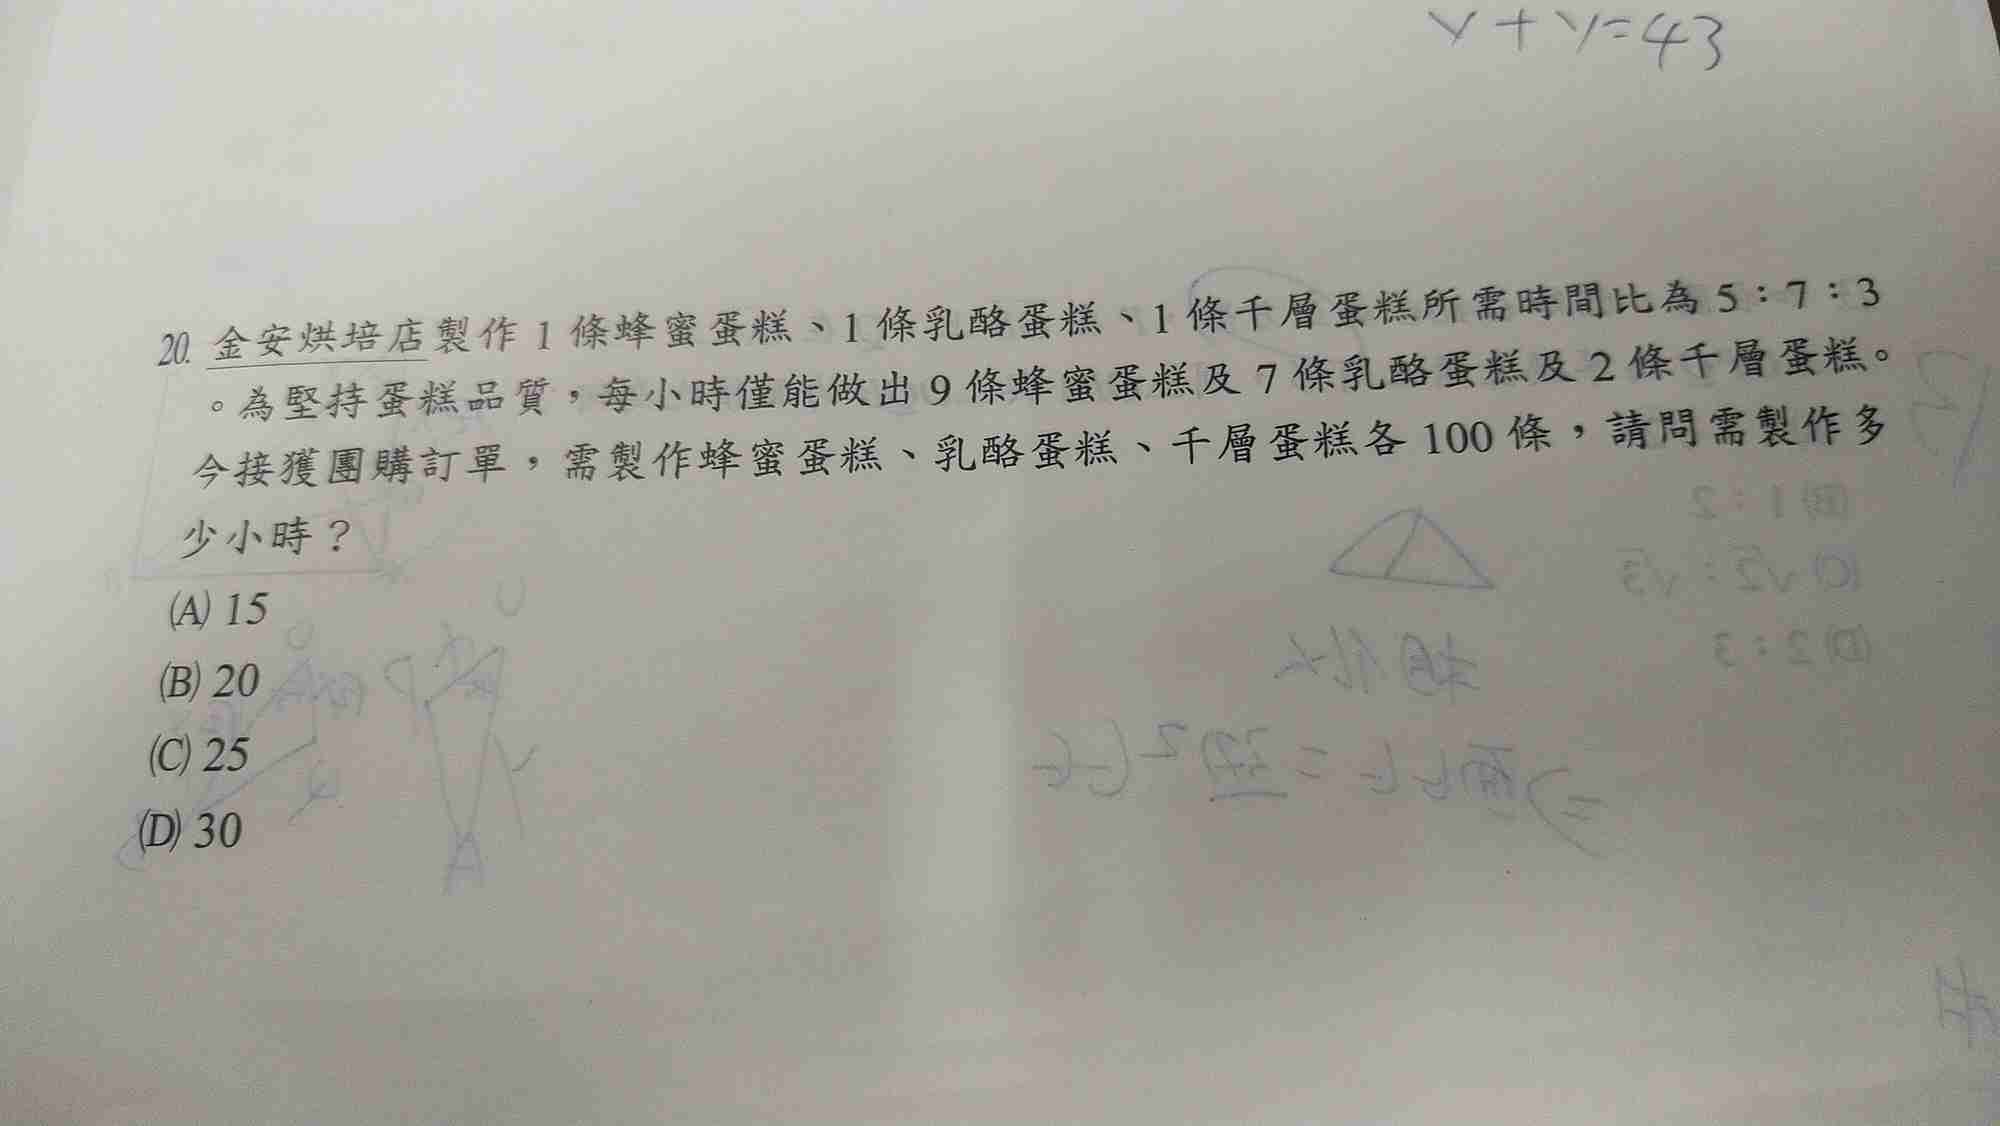 y+y=43
20. 金安烘培店製作1條蜂蜜蛋糕、1條乳酪蛋糕、1條千層蛋糕所需時間比為5：7：3
。為堅持蛋糕品質，每小時僅能做出9條蜂蜜蛋糕及7條乳酪蛋糕及2條千層蛋糕。
今接獲團購訂單，需製作蜂蜜蛋糕、乳酪蛋糕、千層蛋糕各100條，請問需製作多
少小時？
(A) 15
(B) 20
(C) 25
(D) 30